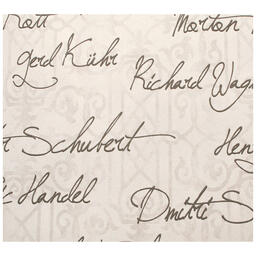 Rott
Morton
Gerd Kühr
Richard Wagn
r Schubert
Hen
ic Handel
Dmitri S